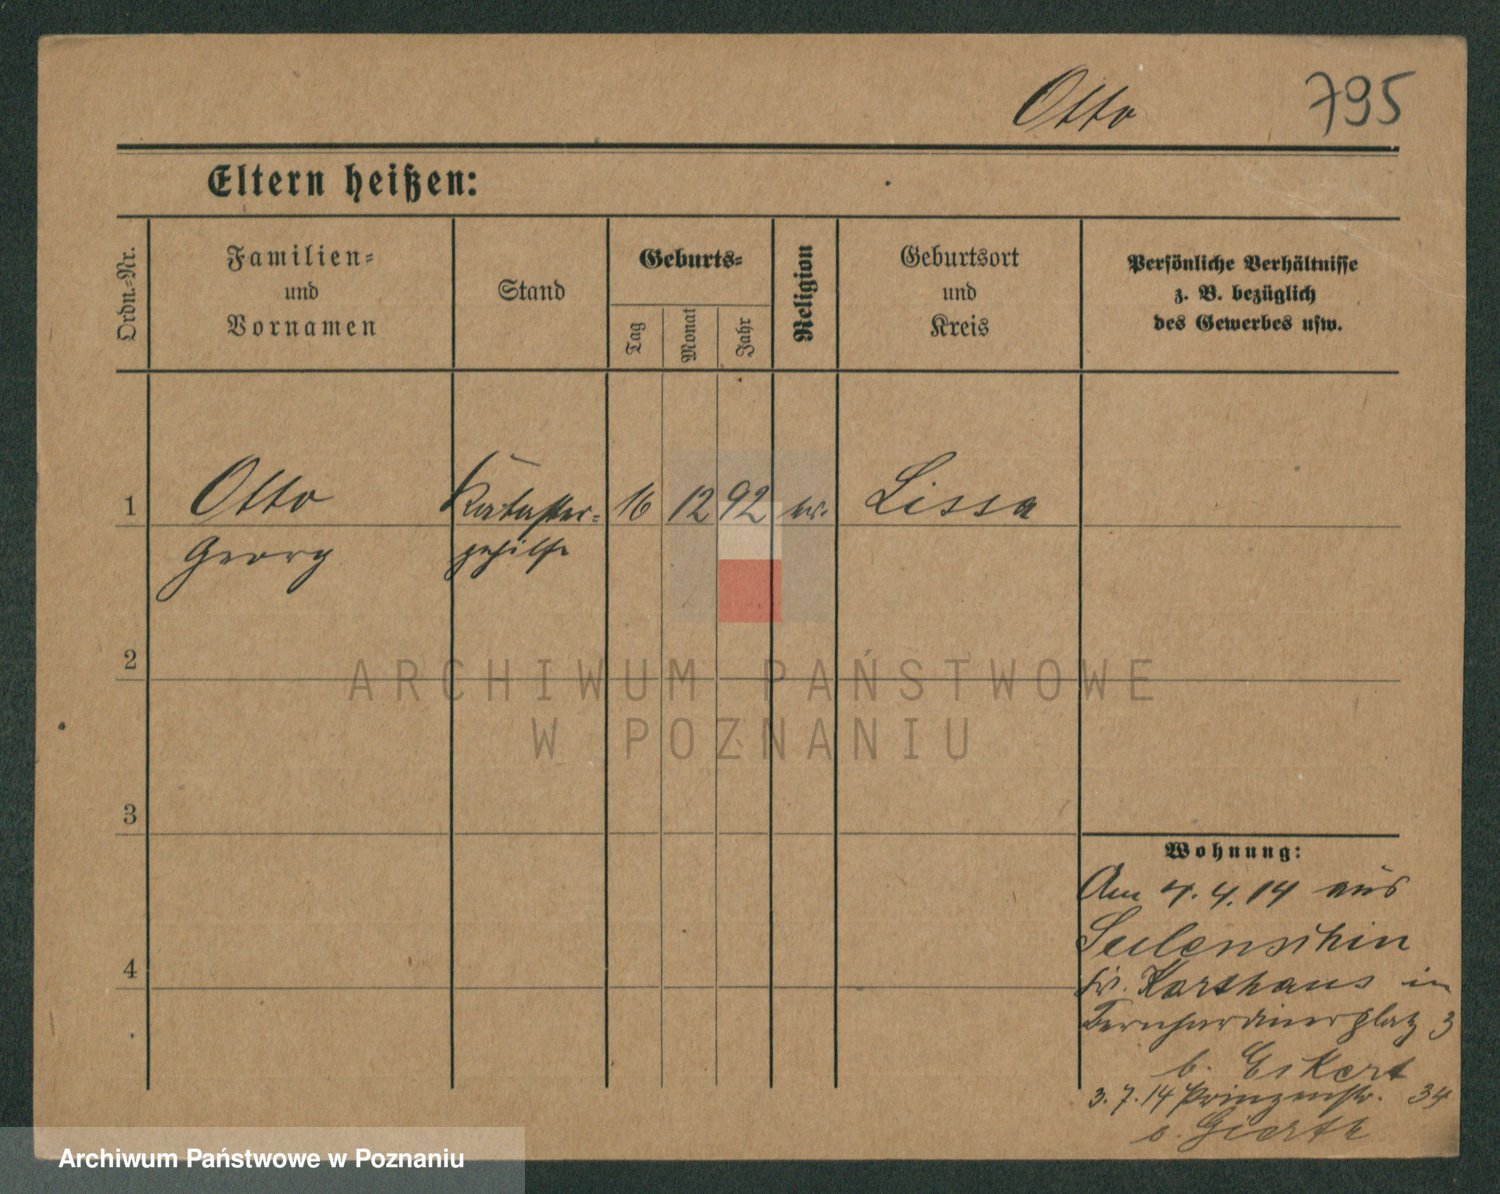 Otto 795
Eltern heißen:
Ordn.-Nr.
Familien-
und
Vornamen
Stand
Geburts-
Tag
Monat
Jahr
Religion
Geburtsort
und
Kreis
Persönliche Verhältnisse
z. B. bezüglich
des Gewerbes usw.
1 Otto Kataster- 16 12 92 ev. Lissa
Georg gehilfe
2
3
4
Wohnung:
Am 4.4.14 aus
Kr. Karthaus in
Bernhardinerplatz 3
b. Eikert
3.7.14 Prinzenstr. 34
ARCHIWUM PAŃSTWOWE
W POZNANIU
Archiwum Państwowe w Poznaniu